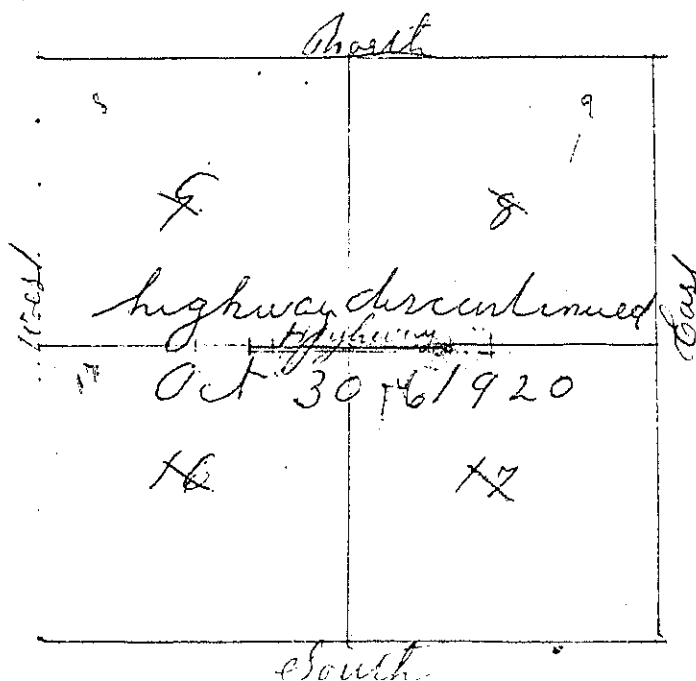 North
8 9
9 8
West
highway discontinued
East
Highway
17
Oct 30th 1920
16 17
South